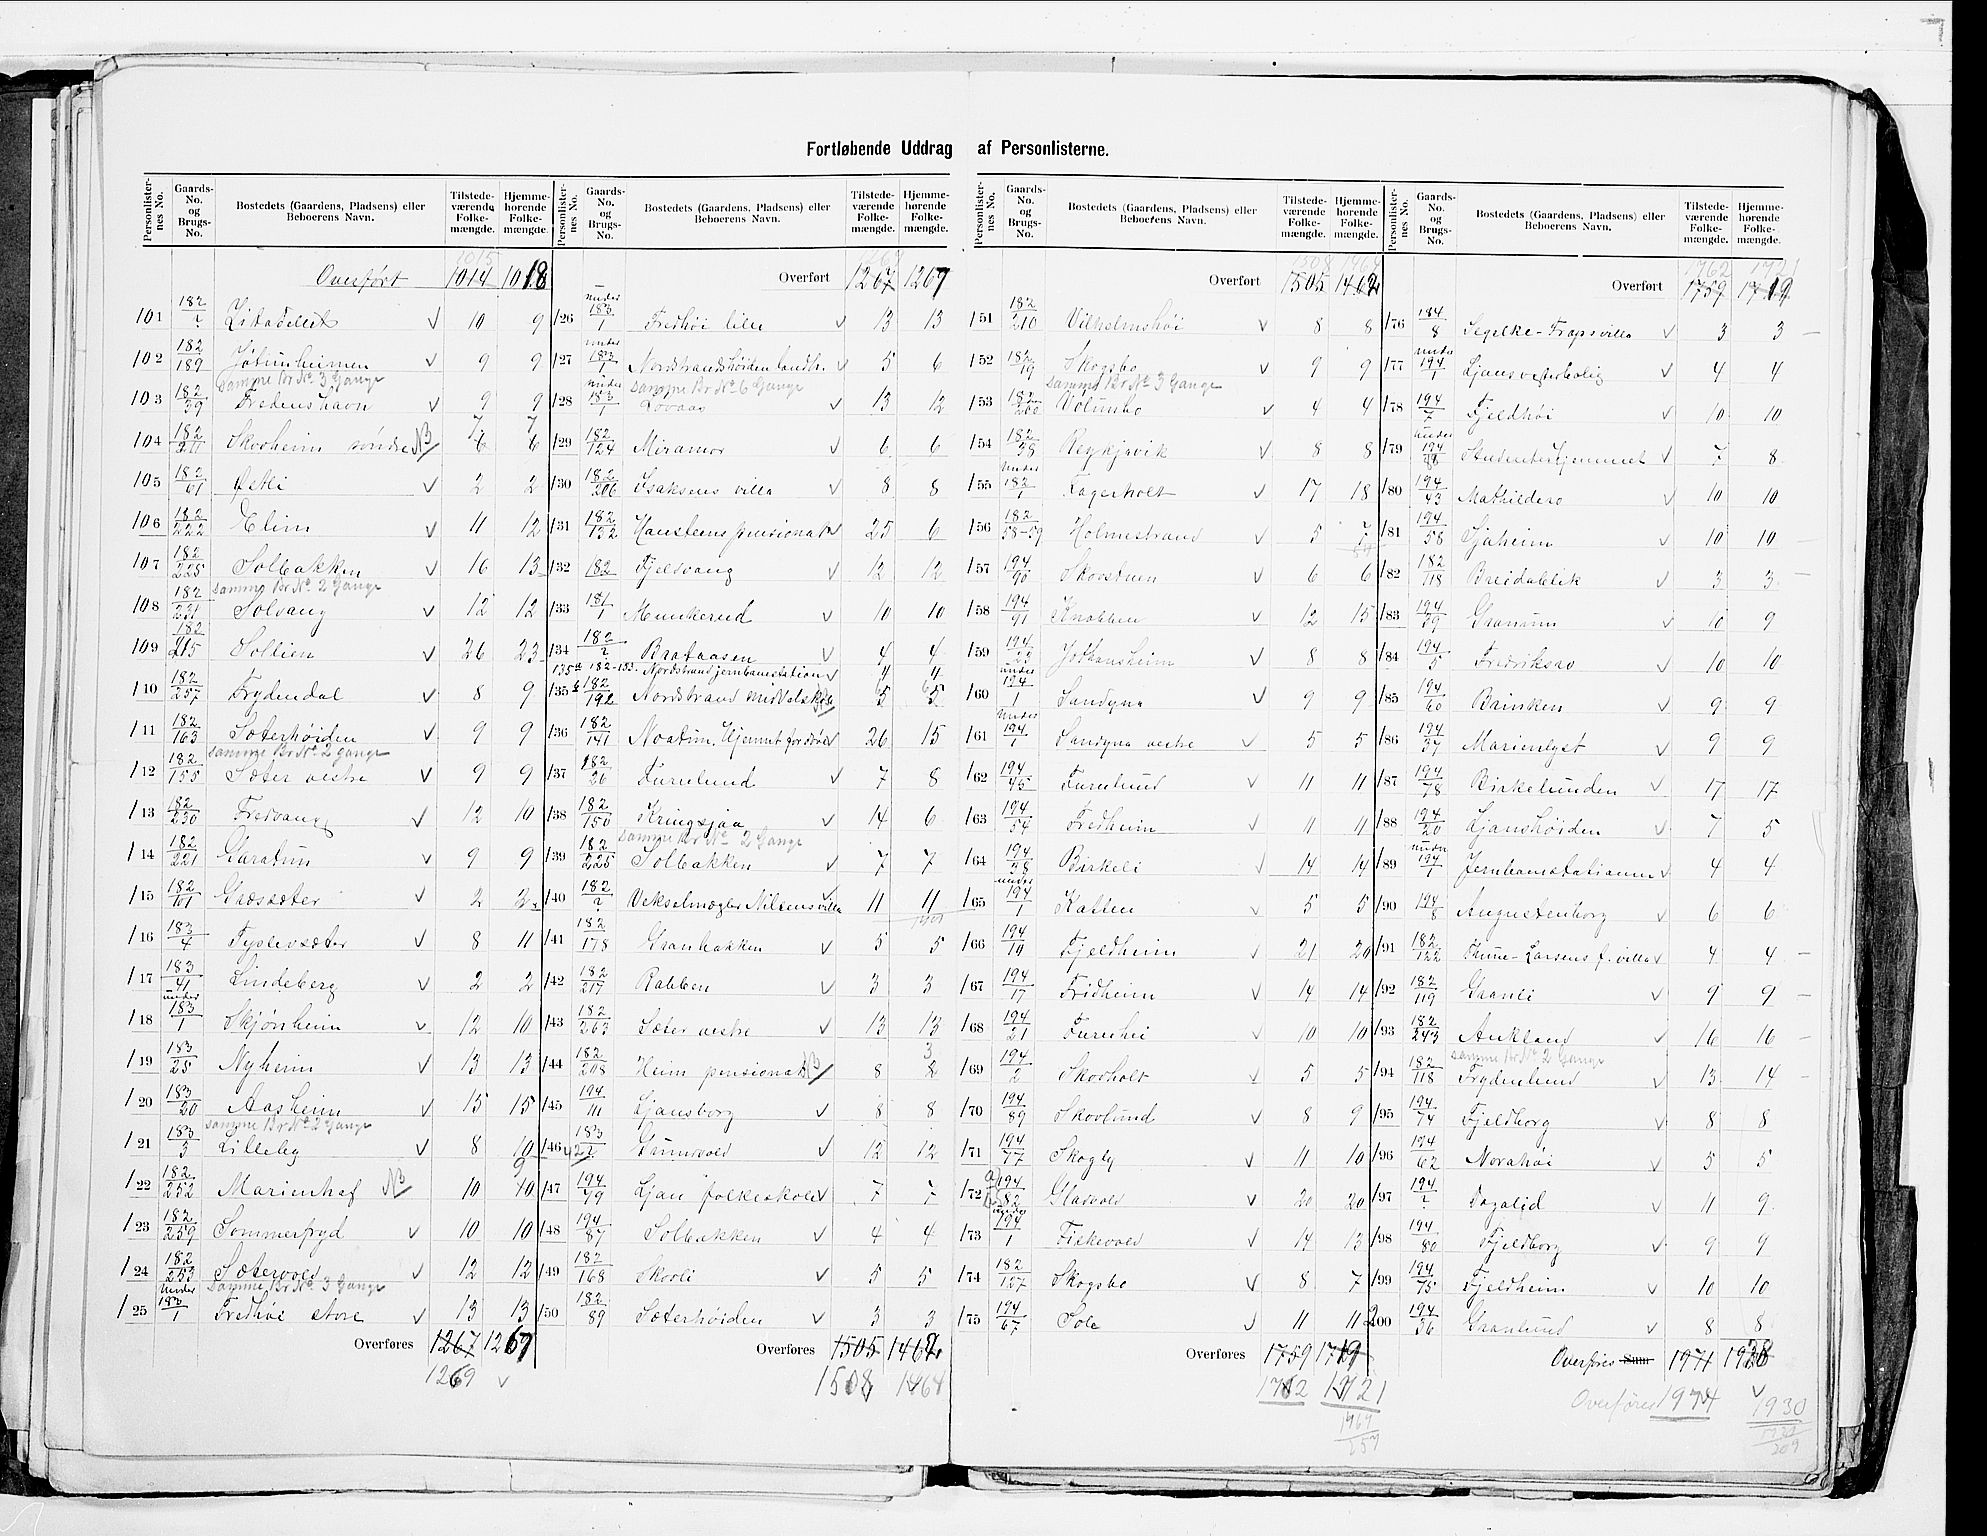 Fortløbende Uddrag af Personlisterne.
Personlister-nes No. Gaards-No. og Brugs-No. Bostedets (Gaardens, Pladsens) eller Beboerens Navn. Tilstede-værende Folke-mængde. Hjemme-hørende Folke-mængde.
2015
Overført 1014 1018
101 182/? Littadellet v 10 9
102 182/189 Jøtunheimen v 9 9
samme Br No 3 Gange
103 182/39 Fredenshavn v 9 9
7 7
104 182/211 Skovheim søndre NB 6 6
105 183/61 Øetli v 2 2
106 182/222 Elim v 11 12
107 182/225 Solbakken v 16 13
samme Br No 2 Gange
108 182/231 Solvang v 12 12
109 182/215 Sollien v 26 23
110 182/257 Frydendal v 8 9
111 182/163 Sæterhøiden v 9 9
samme Br No 2 gange
112 182/155 Sæter vestre v 9 9
113 182/230 Fredvang v 12 10
114 182/221 Garatun v 9 9
115 182/101 Græsæter v 2 2
116 183/4 Tyslevsæter v 8 11
117 183/41 Lindeberg v 2 2
118 under 183/1 Skjønheim v 12 10
119 183/25 Nyheim v 13 13
120 183/20 Aasheim v 15 15
samme Br No 2 Gange
121 183/3 Lilleby v 8 10
9
122 182/252 Marienhof NB 10 10
123 182/259 Sommerfryd v 10 10
124 182/253 Sætervold v 12 12
samme Br No 3 Gange
125 under 183/1 Fredhøi store v 13 13
Overføres 1267 1267
1269 v
Personlister-nes No. Gaards-No. og Brugs-No. Bostedets (Gaardens, Pladsens) eller Beboerens Navn. Tilstede-værende Folke-mængde. Hjemme-hørende Folke-mængde.
Overført 1267 1267
126 under 183/1 Fredhøi lille v 13 13
127 under 183/1 Nordstrandshøiden landh. v 5 6
samme Br No 6 Gange
128 under 183/1 Løvaas v 13 12
129 182/124 Miramar v 6 6
130 182/206 Isaksens villa v 8 8
131 182/132 Hansteens pensionat v 25 6
132 182 Fjeldvang v 12 12
133 181/1 Munkerud v 10 10
134 182/? Brataasen v 4 4
135a 182-183 Nordstrand jernbanestation v 4 4
135 b 182/192 Nordstrand middelskole 5 5
136 182/141 Noatun, Hjemmet for døve v 26 15
137 182/26 Furulund v 7 8
138 182/150 Kringsjaa v 14 6
samme Br No 2 Gange
139 182/225 Solbakken v 7 7
140 182/? Vekselmægler Nilsens villa v 11 11
141 182/178 Granbakken v 5 5
142 182/217 Rabben v 3 3
143 182/263 Sæter vestre v 13 13
3
144 182/208 Heim pensionat NB 8 2
145 194/111 Ljansborg v 8 8
146 183/2 Grimsvold v 12 12
147 194/49 Ljan folkeskole v 7 7
148 194/87 Solbakken v 4 4
149 182/168 Skovli v 5 5
150 182/89 Sæterhøiden v 3 3
Overføres 1505 1462
1508 1464
Personlister-nes No. Gaards-No. og Brugs-No. Bostedets (Gaardens, Pladsens) eller Beboerens Navn. Tilstede-værende Folke-mængde. Hjemme-hørende Folke-mængde.
1508 1464
Overført 1505 1462
151 182/210 Vilhelmshøi v 8 8
152 182/19 Skogsbo v 9 9
samme Br No 3 Gange
153 182/260 Volumbo v 4 4
154 182/38 Reykjavik v 8 8
155 under 182/1 Fagerholt v 17 18
156 182/58-59 Holmestrand v 5 7
157 194/90 Skovstuen v 6 6
158 194/91 Knabben v 12 15
159 194/25 Johansheim v 8 8
160 under 194/1 Sandyna v 9 9
161 under 194/1 Sandyna vestre v 5 5
162 194/45 Furulund v 11 11
163 194/54 Fredheim v 11 11
164 194/38 Birkeli v 14 14
165 under 194/1 Katten v 5 5
166 194/19 Fjeldheim v 21 20
167 194/17 Fridheim v 14 14
168 194/21 Furuhei v 10 10
169 194/2 Skovholt v 5 5
170 194/89 Skovlund v 8 9
171 194/77 Skogly v 11 10
172 194/82 Gladvold v 20 20
173 under 194/1 Fiskevold v 14 13
174 182/127 Skogsbo v 8 7
175 194/67 Sole v 11 11
Overføres 1759 1719
1762 1721
1464
257
Personlister-nes No. Gaards-No. og Brugs-No. Bostedets (Gaardens, Pladsens) eller Beboerens Navn. Tilstede-værende Folke-mængde. Hjemme-hørende Folke-mængde.
1762 1721
Overført 1759 1719
176 184/8 Segelke-Traps villa v 3 3
177 under 194/1 Ljansvesterbolig v 4 4
178 194/7 Fjeldhøi v 10 10
179 under 194/88 Studenterhjemmet v 7 8
180 194/43 Mathildero v 10 10
181 194/58 Sjøheim v 10 10
182 182/118 Breidablik v 3 3
183 194/39 Granum v 10 9
184 194/5 Fredriksro v 10 10
185 194/60 Brinken v 9 9
186 194/37 Marienlyst v 9 9
187 194/78 Birkelunden v 17 17
188 194/20 Ljanshøiden v 7 5
189 under 194/1 Jernbanestationen v 4 4
190 194/8 Augustenborg v 6 6
191 182/122 Thune-Larsens f. villa v 4 4
192 182/119 Granli v 9 9
193 182/243 Aukland v 16 16
samme Br No 2 Gange
194 182/118 Frydenlund v 13 14
195 194/74 Fjeldborg v 8 8
196 194/62 Norahøi v 5 5
197 194/? Dagalid v 11 9
198 194/80 Fjeldborg v 9 9
199 194/75 Fjeldheim v 10 10
200 194/36 Granlund v 8 8
Overføres Sum 1971 1928
Overføres 1974 1930
209